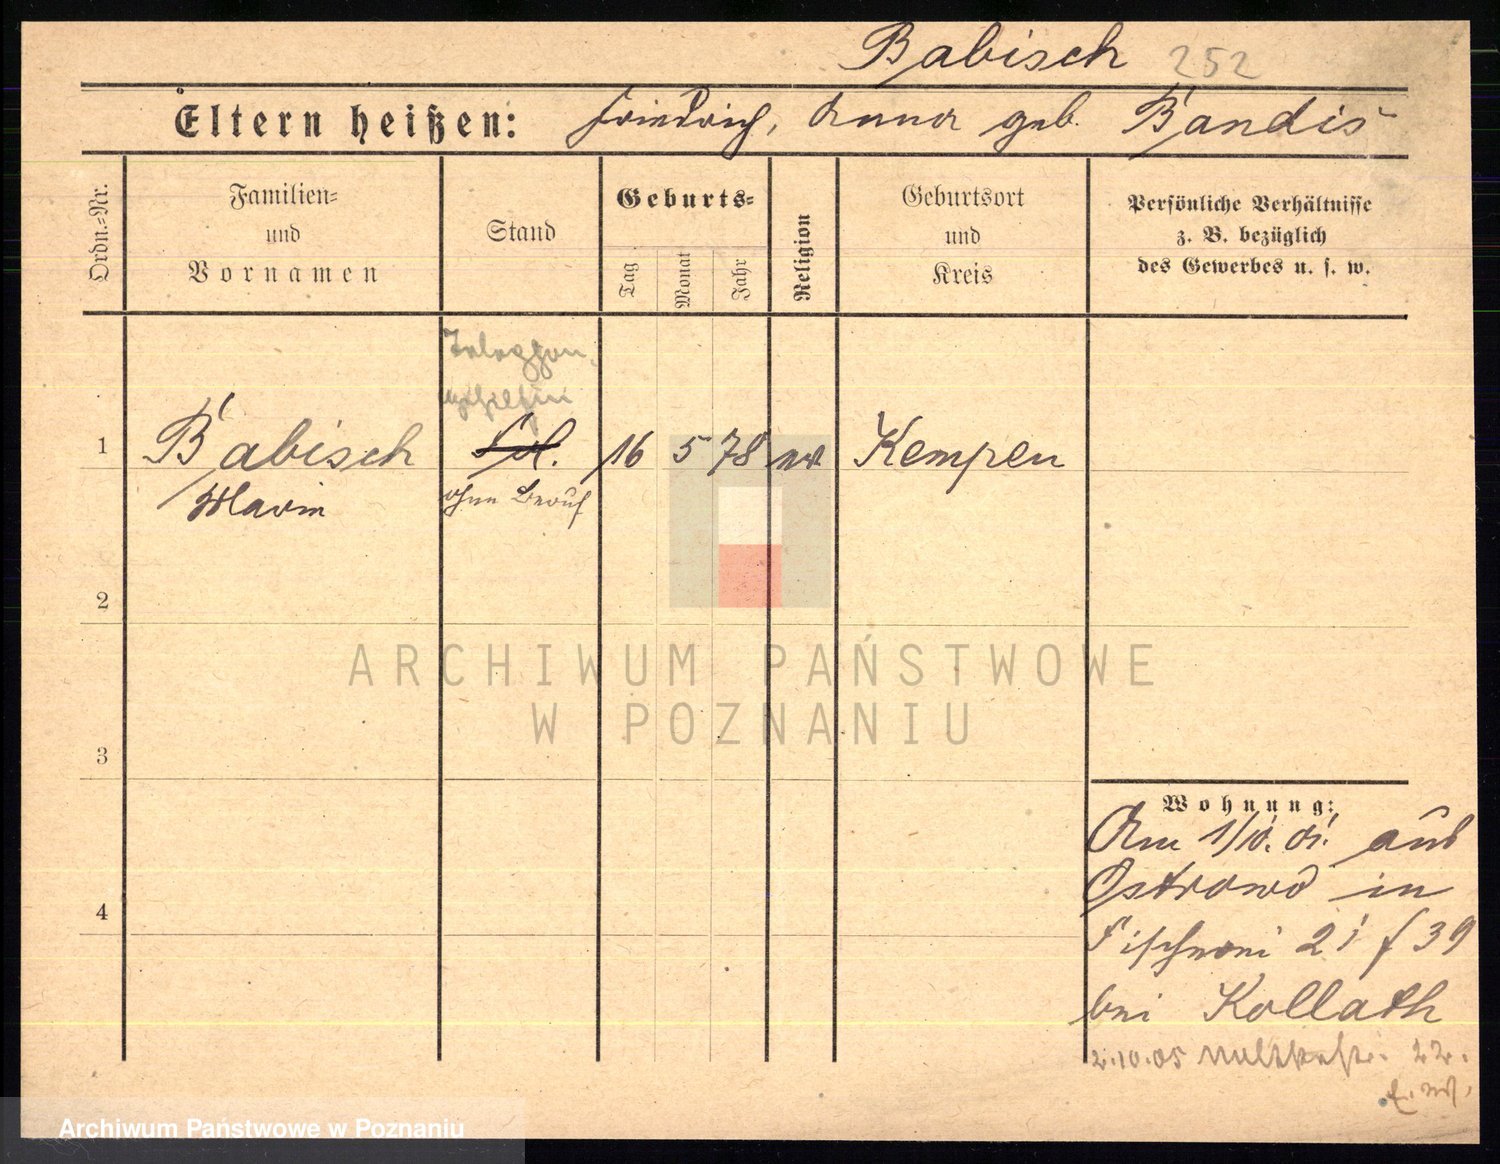 Babisch 252
Eltern heißen: Friedrich, Anna geb. Bandis
Ordn.-Nr.
Familien-
und
Vornamen
Stand
Geburts-
Tag
Monat
Jahr
Religion
Geburtsort
und
Kreis
Persönliche Verhältnisse
z. B. bezüglich
des Gewerbes u. s. w.
1 Babisch 16 5 78 ev Kempen
Marie ohne Beruf
2
ARCHIWUM PAŃSTWOWE
W POZNANIU
3
4
Wohnung:
Am 1/10. 01. aus
Ostrowo in
Fischerei 21 f 39
bei Kollath
2.10.05 22.
Archiwum Państwowe w Poznaniu